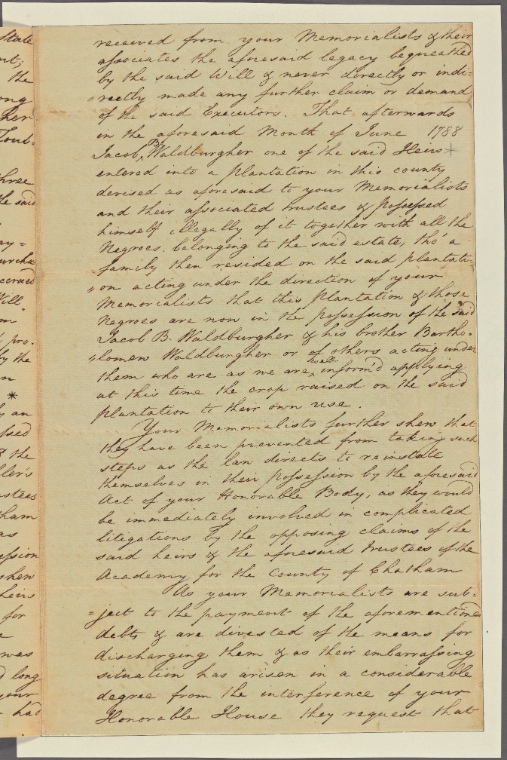 received from your Memorialists & their
associates the aforesaid legacy bequeathed
by the said Will & never directly or indi-
rectly made any further claim or demand
of the said Executors. That afterwards
in the aforesaid Month of June 1788
Jacob B Waldburgher one of the said Heirs
entered into a plantation in this county
devised as aforesaid to your Memorialists
and their associated trustees & possessed
himself illegally of it together with all the
Negroes. belonging to the said estate, tho' a
family then resided on the said plantati-
on acting under the direction of your
Memorialists that this Plantation & those
Negroes are now in the possession of the said
Jacob B. Waldburgher & his brother Bartho-
lomew Waldburgher or of others acting under
them who are as we are well inform'd applying
at this time the crop raised on the said
plantation to their own use.
Your Memorialists further shew that
they have been prevented from taking such
steps as the law directs to reinstate
themselves in their possession by the aforesaid
Act of your Honorable Body, as they would
be immediately involved in complicated
litegations by the opposing claims of the
said heirs & the aforesaid trustees of the
Academy for the County of Chatham
As your Memorialists are sub-
ject to the payment of the aforementioned
debts & are divested of the means for
discharging them & as their embarrassing
situation has arisen in a considerable
degree from the interference of your
Honorable House they request that
State
the
three
the said
Will.
pro.
by the
*
by an
the
Chatham
shew
heirs
for
was
long
your
had